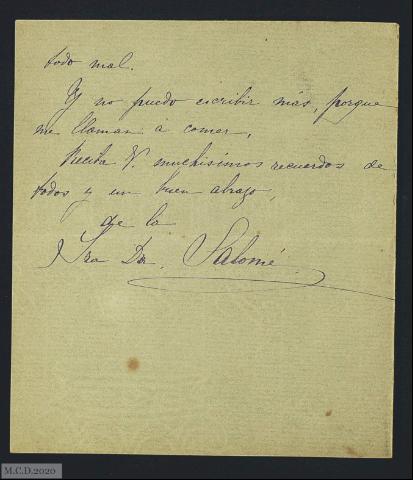 todo mal.
Y no puedo escribir más, porque
me llaman á comer.
Reciba V. muchísimos recuerdos de
todos y un buen abrazo,
de la
Sra Da. Salomé.
M.C.D.2020